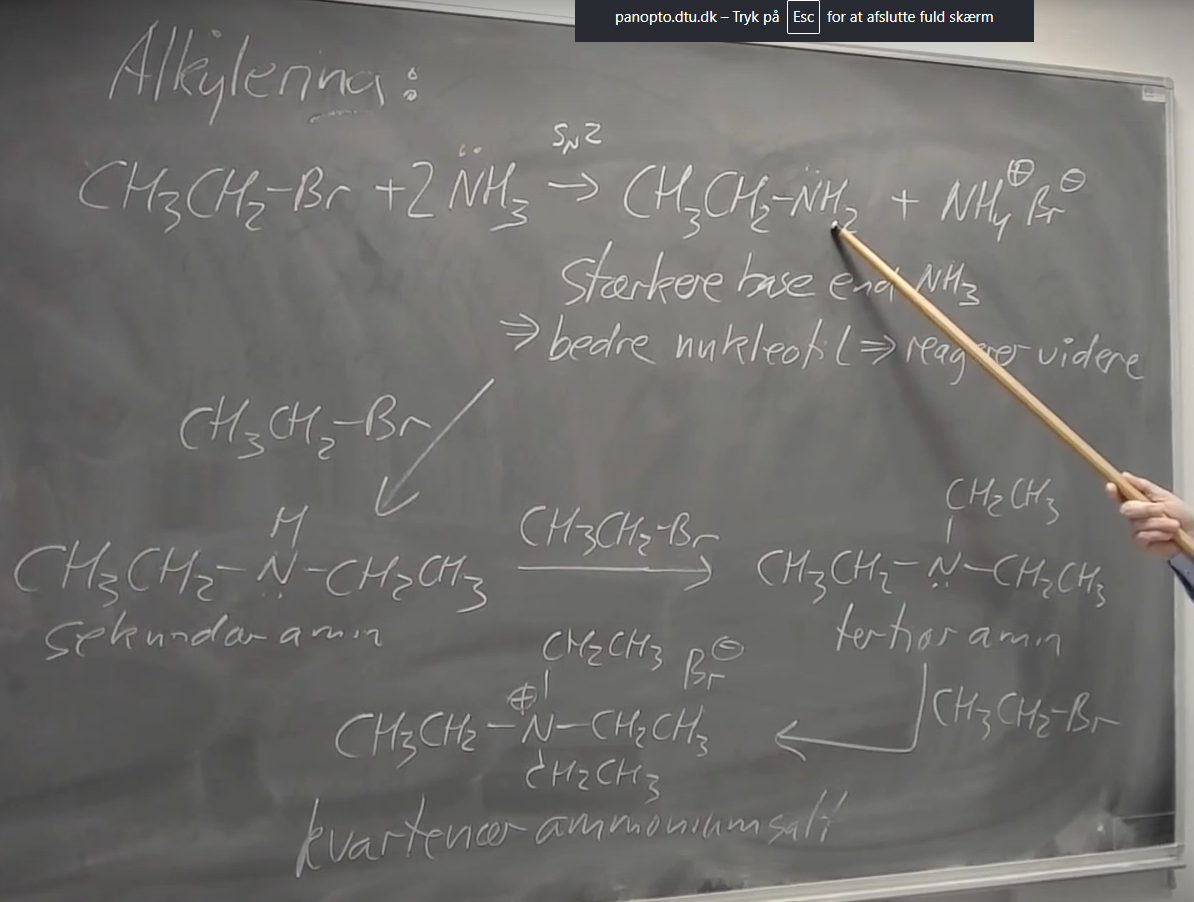 panopto.dtu.dk – Tryk på Esc for at afslutte fuld skærm
Alkylering:
CH₃CH₂–Br + 2 N̈H₃ →(SN2) CH₃CH₂–N̈H₂ + NH₄⊕ Br⊖
Stærkere base end NH₃
⇒ bedre nukleofil ⇒ reagerer videre
CH₃CH₂–Br
H
CH₂CH₃
CH₃CH₂–Br
CH₃CH₂–N̤–CH₂CH₃ → CH₃CH₂–N̤–CH₂CH₃
sekundær amin
tertiær amin
CH₂CH₃ Br⊖
⊕
CH₃CH₂–N–CH₂CH₃
CH₃CH₂–Br
CH₂CH₃
kvartenær ammoniumsalt